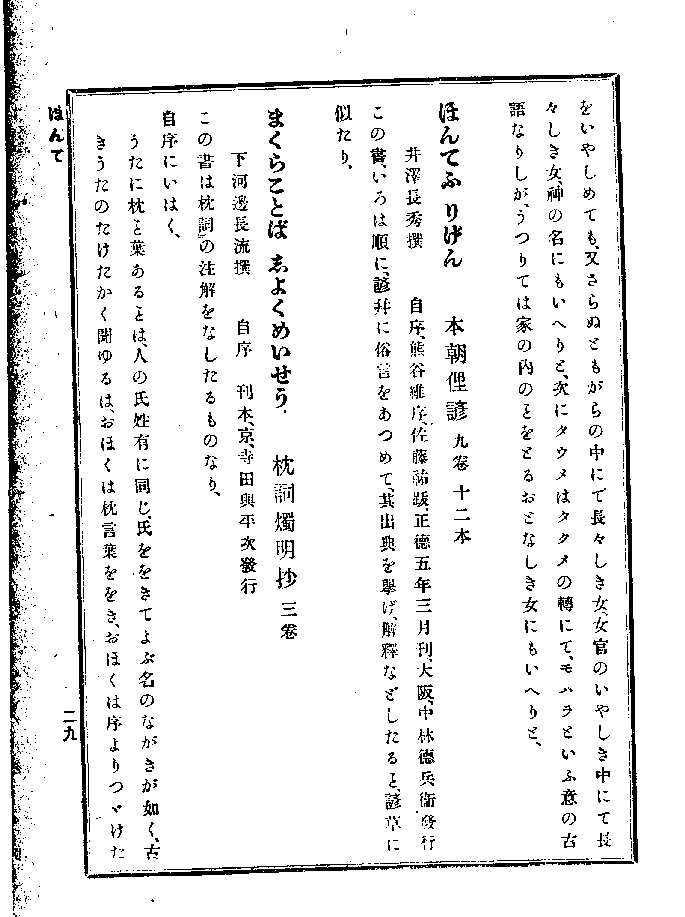 をいやしめても、又さらぬともがらの中にて長々しき女、女官のいやしき中にて長
々しき女、神の名にもいへりと、次にタウメはタクメの轉にて、モハラといふ意の古
語なりしが、うつりては家の内のことをとるおとなしき女にもいへりと、
ほんてふ りげん 本朝俚諺 九卷 十二本
井澤長秀撰 自序、熊谷維序、佐藤祐跋、正德五年三月刊、大阪、中林德兵衞發行
この書、いろは順に、諺幷に俗言をあつめて、其出典を擧げ、解釋などしたること、諺草に
似たり、
まくらことば 志よくめいせう 枕詞燭明抄 三卷
下河邊長流撰 自序 刊本、京、寺田與平次發行
この書は枕詞の注解をなしたるものなり、
自序にいはく、
うたに枕こと葉あることは、人の氏姓有に同じ、氏ををきてよぶ名のながきが如く、古
きうたのたけたかく聞ゆるは、おほくは枕言葉ををき、おほくは序よりつゞけた
ほんて
二九